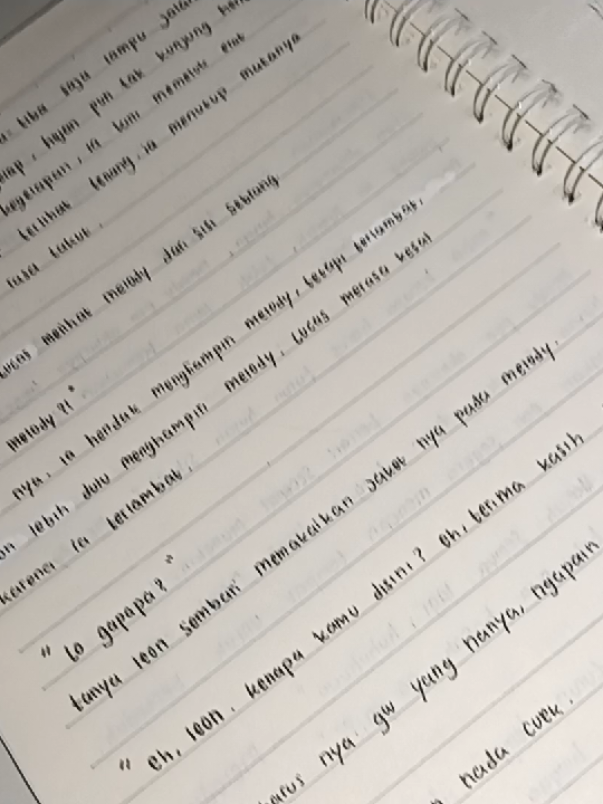 tiba saja lampu jalan
, hujan pun tak kunjung
kegelapan, ia lalu memeluk erat
terlihat tenang, ia menutup mukanya
rasa takut.
Lucas melihat melody dari sisi sebrang.
melody?!"
nya, ia hendak menghampiri melody, tetapi terlambat,
lebih dulu menghampiri melody, Lucas merasa kesal
karena ia terlambat.
"Lo gapapa?"
tanya leon sembari memakaikan jaket nya pada melody.
"eh, leon. kenapa kamu disini? oh, terima kasih
nya gw yang nanya, ngapain
nada cuek.